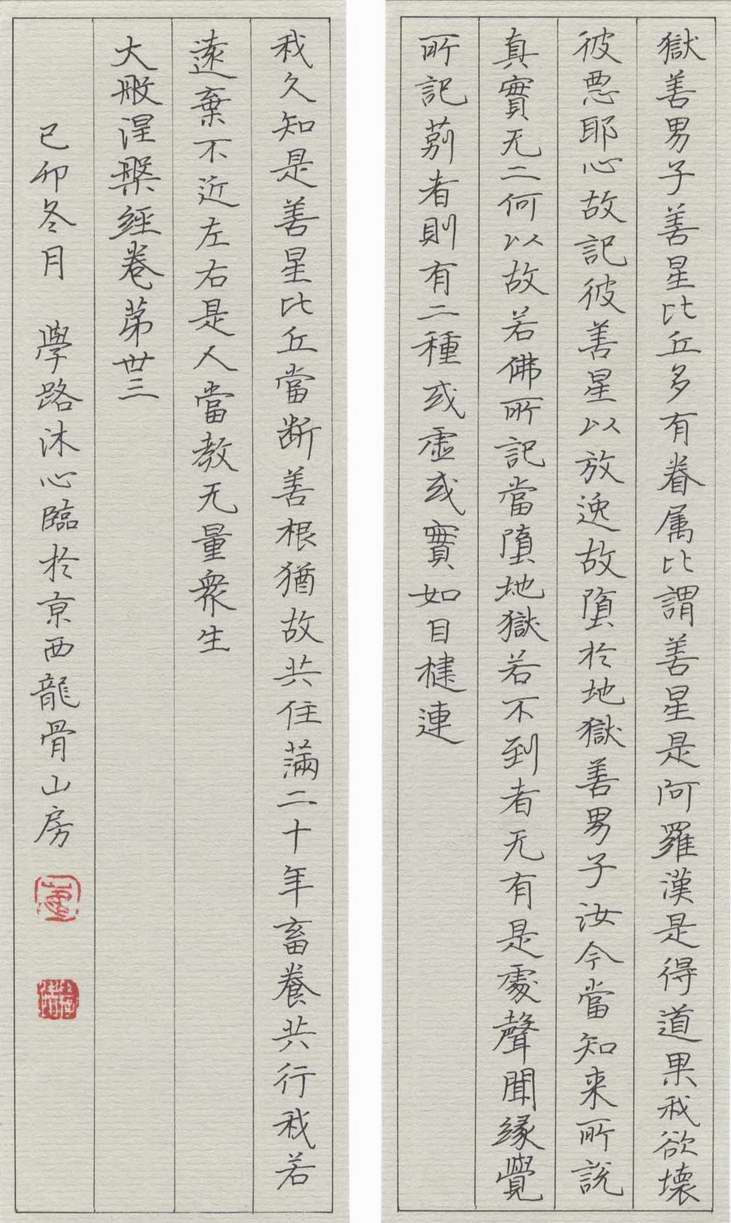 獄善男子善星比丘多有眷属比謂善星是阿羅漢是得道果我欲壞
彼惡耶心故記彼善星以放逸故墮於地獄善男子汝今當知来所說
真實无二何以故若佛所記當墮地獄若不到者无有是處聲聞緣覺
所記莂者則有二種或虛或實如目揵連
我久知是善星比丘當断善根猶故共住滿二十年畜養共行我若
遠棄不近左右是人當教无量衆生
大般涅槃經卷苐卅三
己卯冬月 學路沐心臨於京西龍骨山房